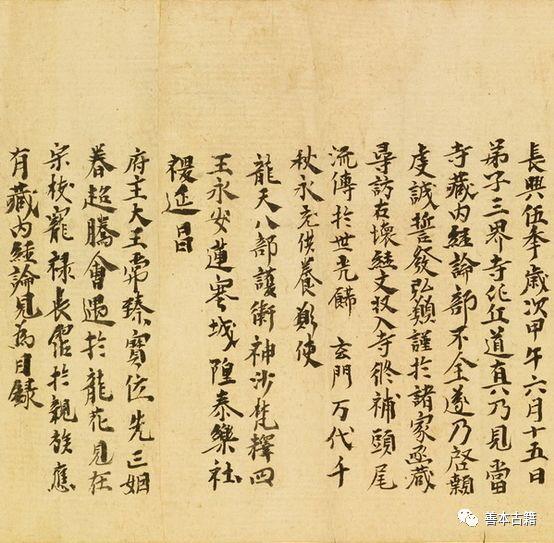 長興伍年歲次甲午六月十五日
弟子三界寺比丘道真乃見當
寺藏內經論部不全遂乃啓顙
虔誠誓發弘願謹於諸家函藏
尋訪古壞經文收入寺修補頭尾
流傳於世光餝 玄門万代千
秋永充供養願使
龍天八部護衛神沙梵釋四
王永安蓮塞城隍泰樂社
稷延昌
府王大王常臻寶位先亡姻
眷超騰會遇於龍花見在
宗枝寵祿長霑於親族應
有藏內經論見為目錄
善本古籍